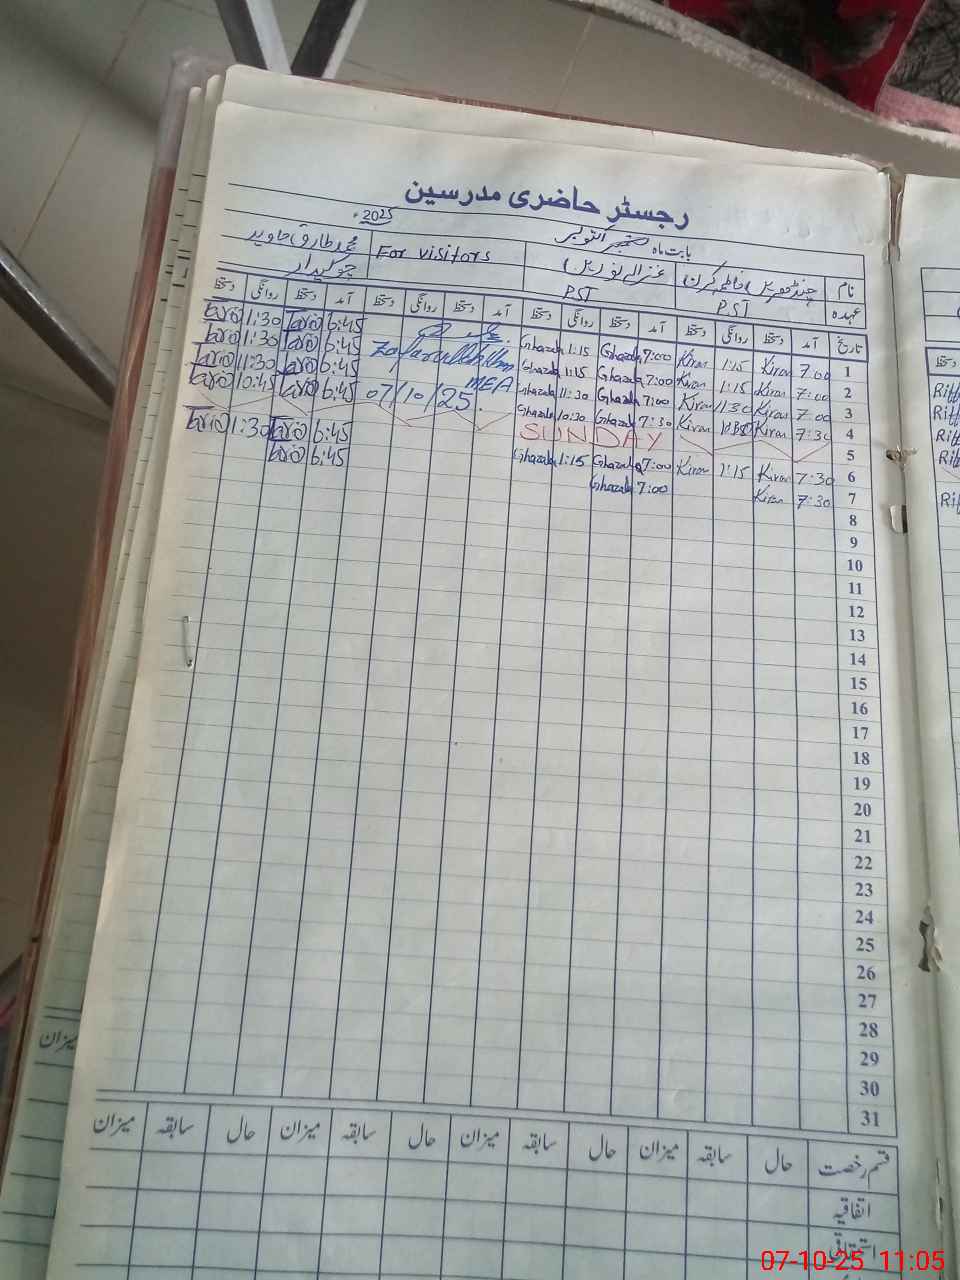 رجسٹر حاضری مدرسین
بابت ماہ اکتوبر 2025ء
نام فاطمہ کرن For visitors محمد طارق جاوید
عہدہ PST PST چوکیدار
تاریخ آمد دستخط روانگی دستخط آمد دستخط روانگی دستخط آمد دستخط روانگی دستخط آمد دستخط روانگی دستخط
1 7:00 Kiran 1:15 Kiran 7:00 Ghazala 1:15 Ghazala 6:45 Tariq 1:30 Tariq
2 7:00 Kiran 1:15 Kiran 7:00 Ghazala 1:15 Ghazala Zafarullah Khan 6:45 Tariq 1:30 Tariq
3 7:00 Kiran 11:30 Kiran 7:00 Ghazala 11:30 Ghazala MEA 6:45 Tariq 11:30 Tariq
4 7:30 Kiran Kiran 7:30 Ghazala 10:30 Ghazala 07/10/25. 6:45 Tariq 10:45 Tariq
5 SUNDAY
6 7:30 Kiran 1:15 Kiran 7:00 Ghazala 1:15 Ghazala 6:45 Tariq 1:30 Tariq
7 7:30 Kiran 7:00 Ghazala 6:45 Tariq
8
9
10
11
12
13
14
15
16
17
18
19
20
21
22
23
24
25
26
27
28
29
30
31
قسم رخصت حال سابقہ میزان حال سابقہ میزان حال سابقہ میزان حال سابقہ میزان
اتفاقیہ
استحقاقی
میزان
دستخط
Riff
Riff
Rif
Rib
Riff
07-10-25 11:05